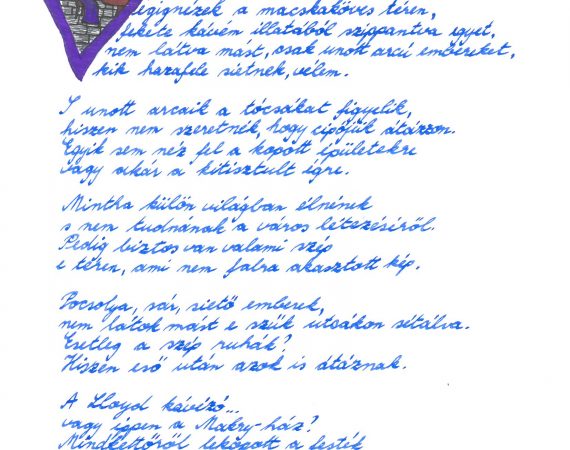 égignézek a macskaköves téren,
fekete kávém illatából szippantva egyet,
nem látva mást, csak unott arcú embereket,
kik hazafele sietnek, vélem.
S unott arcaik a tócsákat figyelik,
hiszen nem szeretnék, hogy cipőjük átázzon.
Egyik sem néz fel a kopott épületekre
vagy akár a kitisztult égre.
Mintha külön világban élnének
s nem tudnának a város létezéséről.
Pedig biztos van valami szép
e téren, ami nem falra akasztott kép.
Pocsolya, sár, siető emberek,
nem látok mást e szűk utcákon sétálva.
Esetleg a szép ruhák?
Hiszen eső után azok is átáznak.
A Lloyd kávézó...
vagy éppen a Makry-ház?
Mindkettőről lekopott a festék